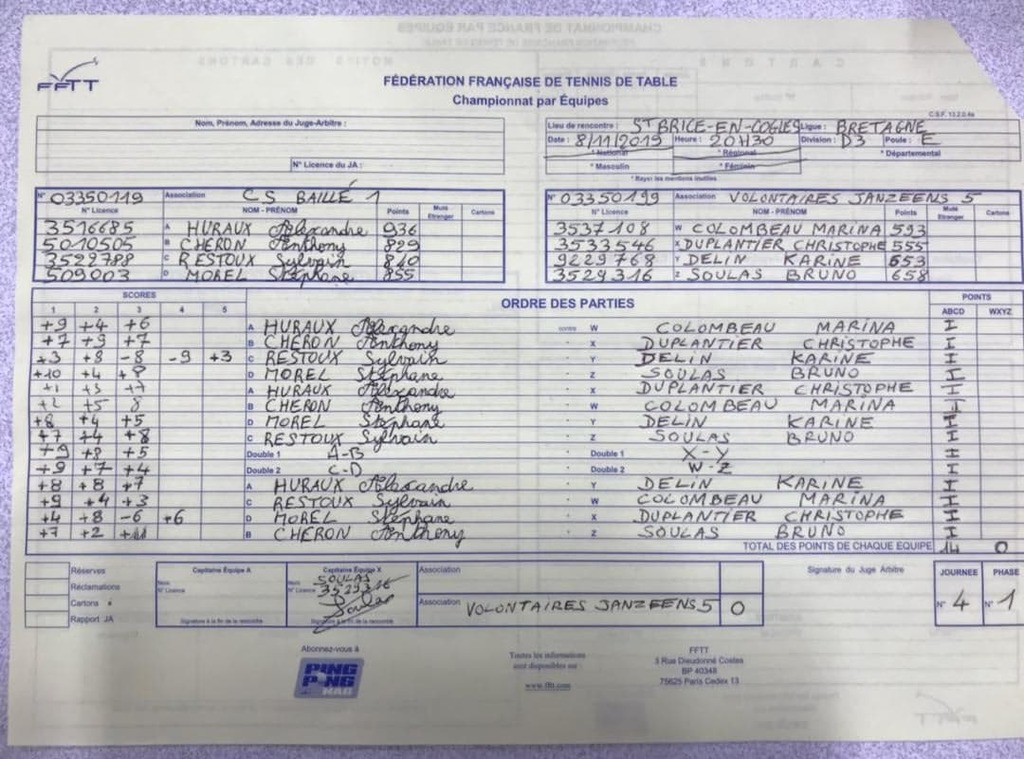 FFTT
FÉDÉRATION FRANÇAISE DE TENNIS DE TABLE
Championnat par Équipes
C.S.F. 13.2.0.4a
Nom, Prénom, Adresse du Juge-Arbitre :
N° Licence du JA :
Lieu de rencontre : ST BRICE-EN-COGLES Ligue : BRETAGNE
Date : 8/11/2019 Heure : 20H30 Division : D3 Poule : E
* National * Régional * Départemental
* Masculin * Féminin
* Rayer les mentions inutiles
N° 03350119 Association CS BAILLÉ 1
N° Licence NOM - PRÉNOM Points Muté Etranger Cartons
3516685 A HURAUX Alexandre 936
5010505 B CHERON Anthony 829
3529788 C RESTOUX Sylvain 810
509003 D MOREL Stéphane 855
N° 03350199 Association VOLONTAIRES JANZEENS 5
N° Licence NOM - PRÉNOM Points Muté Etranger Cartons
3537108 W COLOMBEAU MARINA 593
3533546 X DUPLANTIER CHRISTOPHE 555
9229768 Y DELIN KARINE 653
3529316 Z SOULAS BRUNO 658
SCORES ORDRE DES PARTIES POINTS
1 2 3 4 5 ABCD WXYZ
+9 +4 +6 A HURAUX Alexandre contre W COLOMBEAU MARINA I
+7 +9 +7 B CHERON Anthony " X DUPLANTIER CHRISTOPHE I
+3 +8 -8 -9 +3 C RESTOUX Sylvain " Y DELIN KARINE I
+10 +4 +8 D MOREL Stéphane " Z SOULAS BRUNO I
+1 +5 +7 A HURAUX Alexandre " X DUPLANTIER CHRISTOPHE I
+2 +5 8 B CHERON Anthony " W COLOMBEAU MARINA I
+8 +4 +5 D MOREL Stéphane " Y DELIN KARINE I
+7 +4 +8 C RESTOUX Sylvain " Z SOULAS BRUNO I
+9 +8 +5 Double 1 A-B " Double 1 X-Y I
+9 +7 +4 Double 2 C-D " Double 2 W-Z I
+8 +8 +7 A HURAUX Alexandre " Y DELIN KARINE I
+9 +4 +3 C RESTOUX Sylvain " W COLOMBEAU MARINA I
+4 +8 -6 +6 D MOREL Stéphane " X DUPLANTIER CHRISTOPHE I
+7 +2 +11 B CHERON Anthony " Z SOULAS BRUNO I
TOTAL DES POINTS DE CHAQUE ÉQUIPE 14 0
Réserves
Réclamations
Cartons
Rapport JA
Capitaine Équipe A
Nom
N° Licence
Signature à la fin de la rencontre
Capitaine Équipe X
Nom SOULAS
N° Licence 3529316
Soulas
Signature à la fin de la rencontre
Association
Association VOLONTAIRES JANZEENS 5 0
Signature du Juge Arbitre
JOURNEE PHASE
N° 4 N° 1
Abonnez-vous à
PING PONG MAG
Toutes les informations
sont disponibles sur :
www.fftt.com
FFTT
3 Rue Dieudonné Costes
BP 40348
75625 Paris Cedex 13